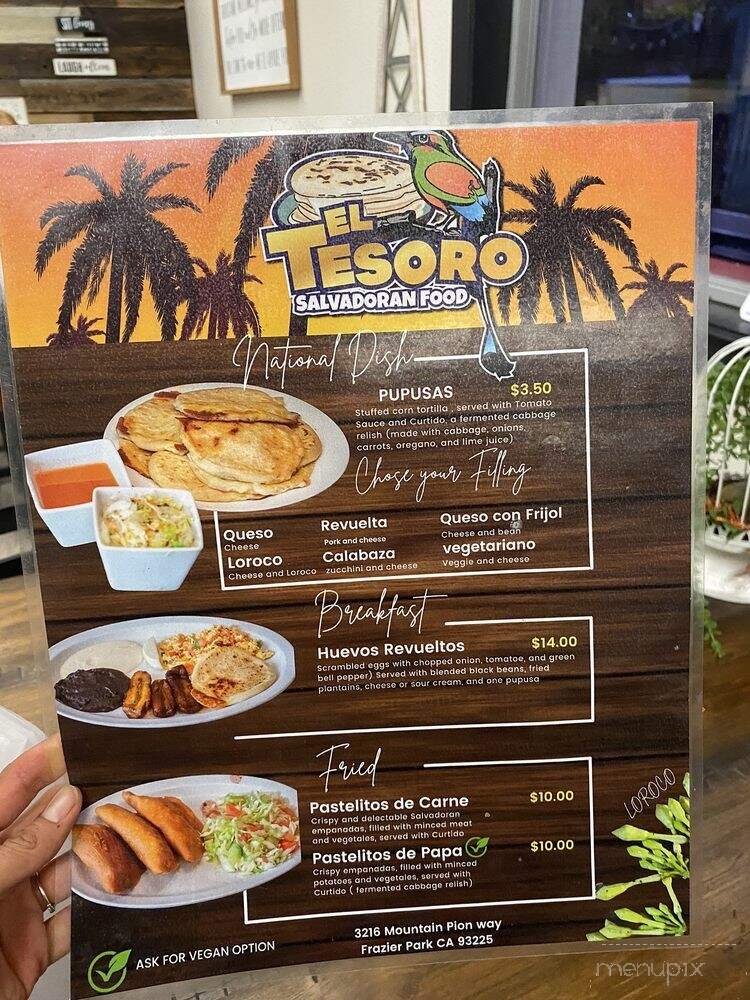 LAUGH often
EL
TESORO
SALVADORAN FOOD
National Dish
PUPUSAS $3.50
Stuffed corn tortilla , served with Tomato
Sauce and Curtido, a fermented cabbage
relish (made with cabbage, onions,
carrots, oregano, and lime juice)
Chose your Filling
Queso
Cheese
Loroco
Cheese and Loroco
Revuelta
Pork and cheese
Calabaza
zucchini and cheese
Queso con Frijol
Cheese and bean
vegetariano
Veggie and cheese
Breakfast
Huevos Revueltos $14.00
Scrambled eggs with chopped onion, tomatoe, and green
bell pepper) Served with blended black beans, fried
plantains, cheese or sour cream, and one pupusa
Fried
Pastelitos de Carne $10.00
Crispy and delectable Salvadoran
empanadas, filled with minced meat
and vegetales, served with Curtido
Pastelitos de Papa $10.00
Crispy empanadas, filled with minced
potatoes and vegetales, served with
Curtido ( fermented cabbage relish)
LOROCO
ASK FOR VEGAN OPTION
3216 Mountain Pion way
Frazier Park CA 93225
menupix